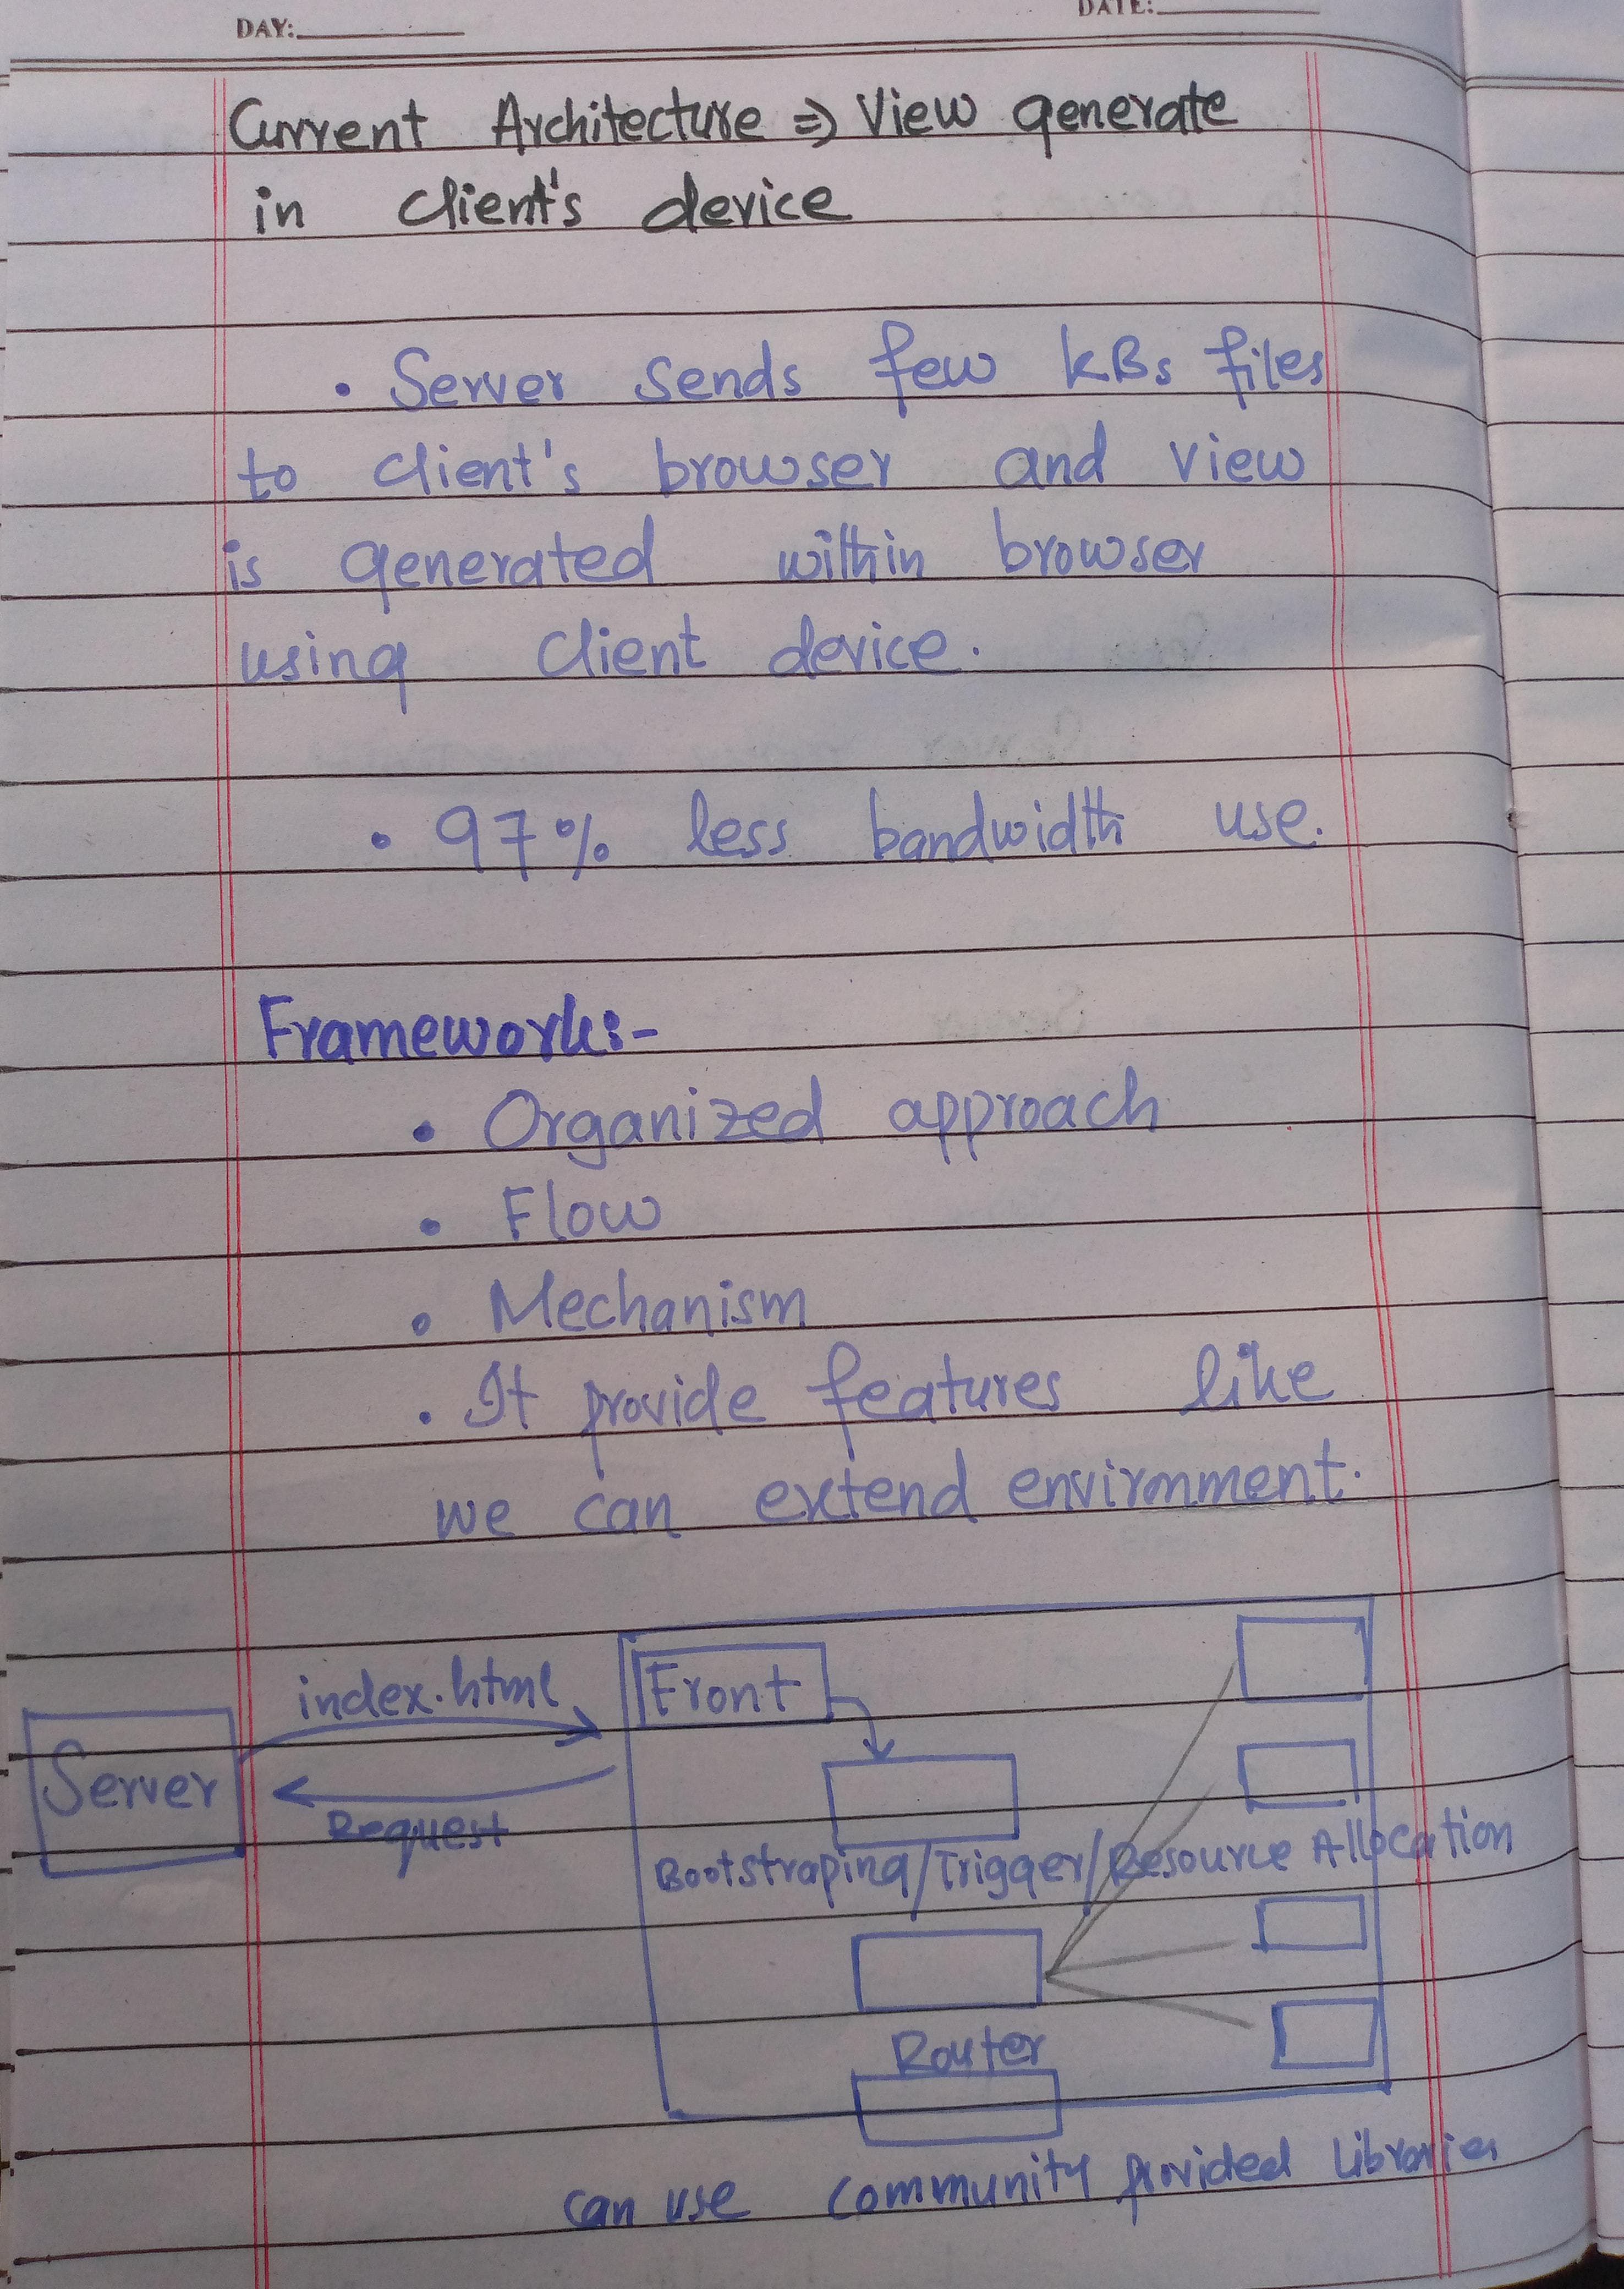 DAY:
DATE:
Current Architecture ⇒ View generate
in client's device
• Server sends few kBs files
to client's browser and view
is generated within browser
using client device.
• 97% less bandwidth use.
Framework:-
• Organized approach
• Flow
• Mechanism
• It provide features like
we can extend environment.
index.html
Front
Server
Request
Bootstraping/Trigger/Resource Allocation
Router
can use community provided libraries